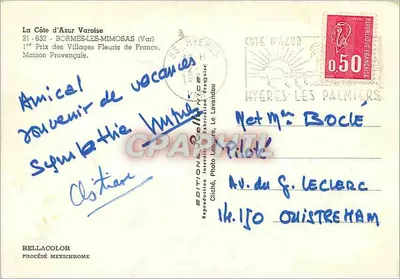 La Côte d'Azur Varoise
21 - 632 - BORMES-LES-MIMOSAS (Var)
1er Prix des Villages Fleuris de France.
Maison Provençale.
Amical
souvenir de vacances
Sympathie
HYERES
COTE D'AZUR
HYERES LES PALMIERS
REPUBLIQUE FRANCAISE
0,50
EDITIONS
Reproduction Interdite
Fabrication Française
Cliché, Photo Le Lavandou
CPAPHIL
M et Mme BOCLÉ
Pilote
Av. du G. LECLERC
14.150 OUISTREHAM
RELLACOLOR
PROCÉDÉ MEXICHROME